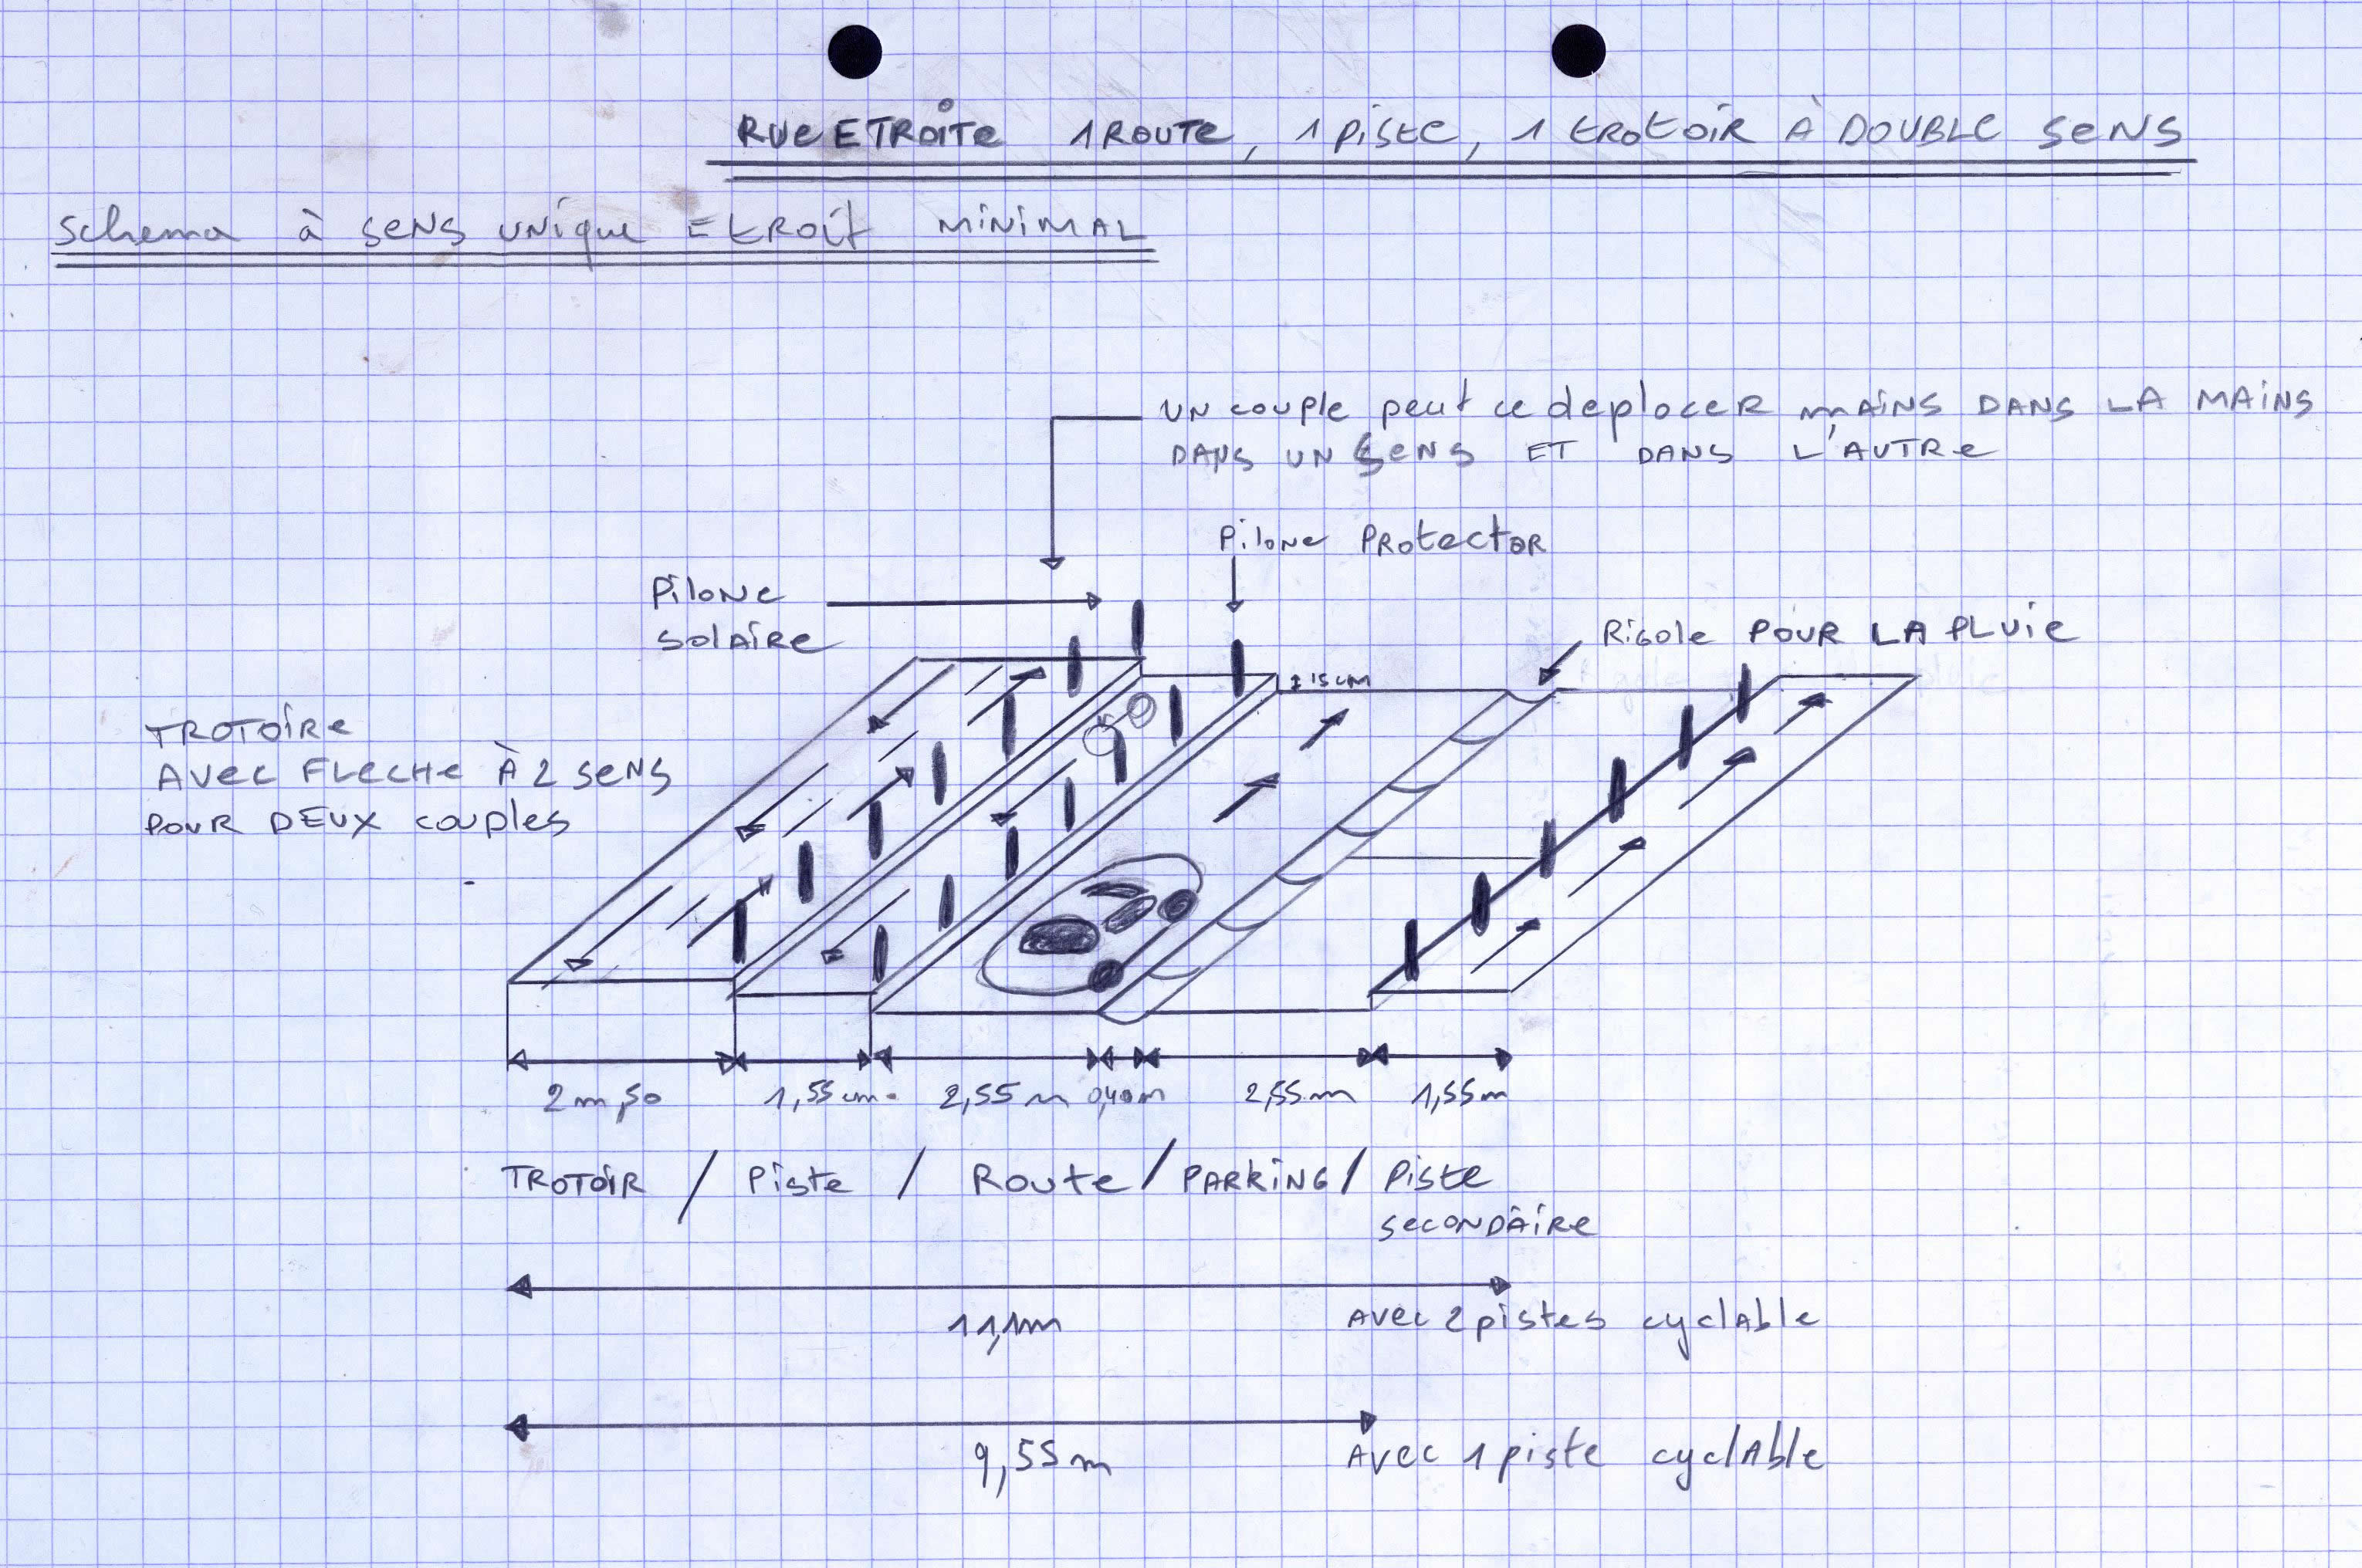 RUE ETROITE 1 ROUTE, 1 PISTE, 1 TROTOIR À DOUBLE SENS
Schema à SENS UNIQUE ETROIT MINIMAL
UN couple peut ce deplacer mains DANS LA MAINS
DANS UN SENS ET DANS L'AUTRE
Pilone PROTECTOR
Pilone
SOLAIRE
Rigole POUR LA PLUIE
± 15 cm
TROTOIRE
AVEC FLECHE À 2 SENS
POUR DEUX couples
2 m,50 1,55 cm 2,55 m 0,40 m 2,55 m 1,55 m
TROTOIR / Piste / Route / PARKING / Piste
SECONDAIRE
11,1m AVEC 2 pistes cyclable
9,55 m AVEC 1 piste cyclable